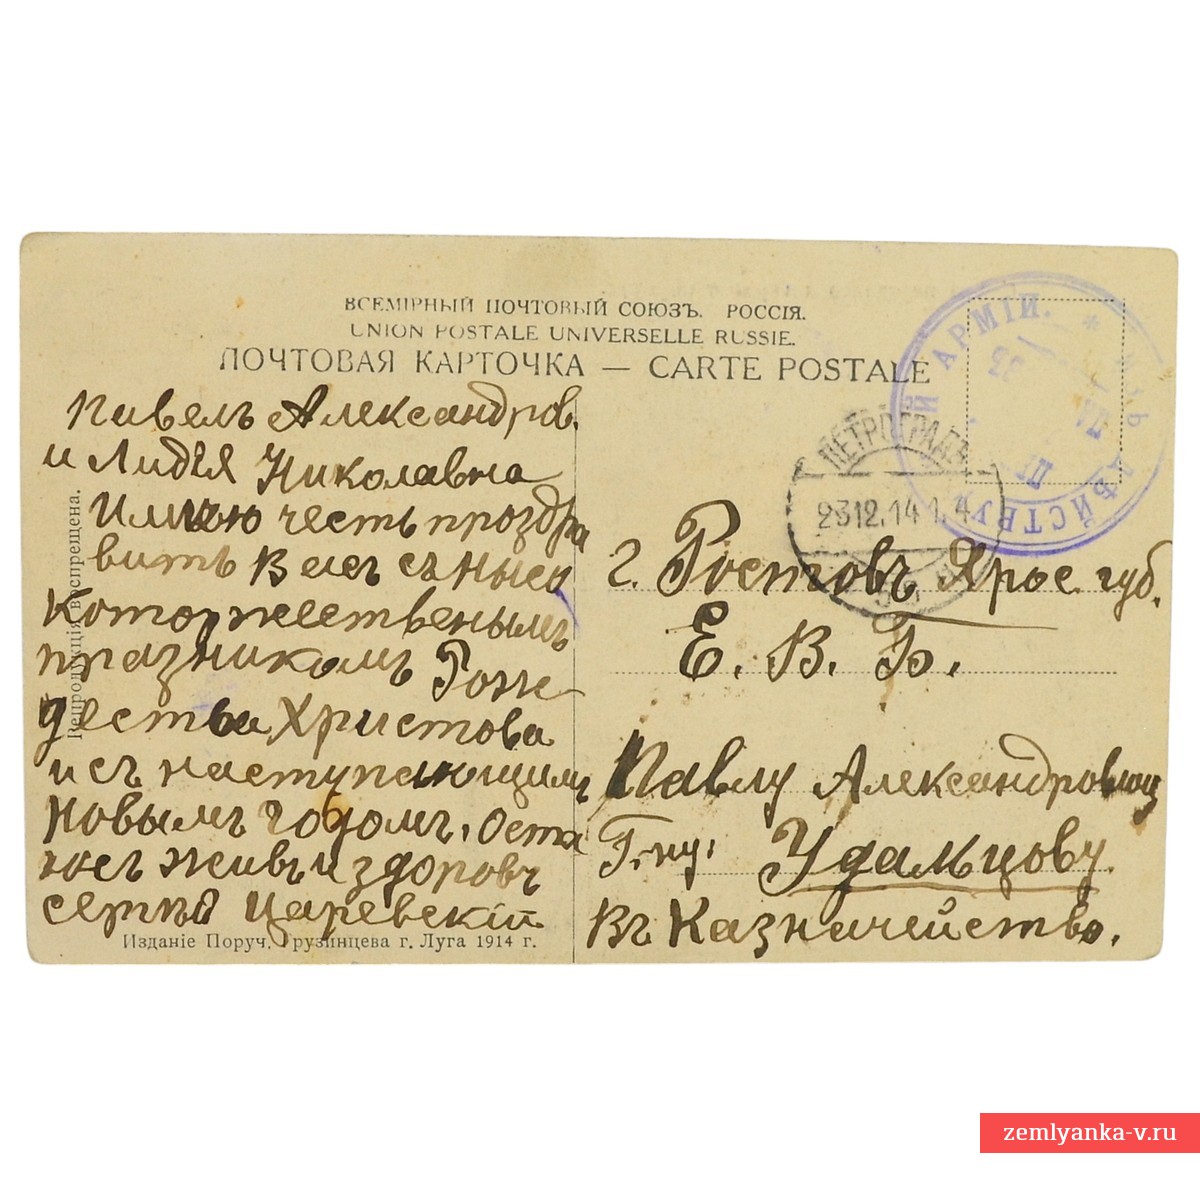 ВСЕМІРНЫЙ ПОЧТОВЫЙ СОЮЗЪ. РОССІЯ.
UNION POSTALE UNIVERSELLE RUSSIE.
ПОЧТОВАЯ КАРТОЧКА — CARTE POSTALE
Павелъ Александров.
и Лидія Николавна
Имѣю честь проздра
вить Васъ съ высо
которжественымъ
празникомъ Рож
дества Христова
и съ наступающимъ
Новымъ годомъ, оста
юсъ живъ и здоровъ
Сергѣй Царевскій
Репродукція воспрещена.
Изданіе Поруч. Грузинцева г. Луга 1914 г.
АРМІИ. * ДѢЙСТВУЮ
ПЕТРОГРАДЪ
23 12. 14 1. 4
г. Ростовъ Ярос. губ.
Е. В. Б.
Павлу Александровичу
Г-ну: Удальцову.
Въ Казначейство.
zemlyanka-v.ru